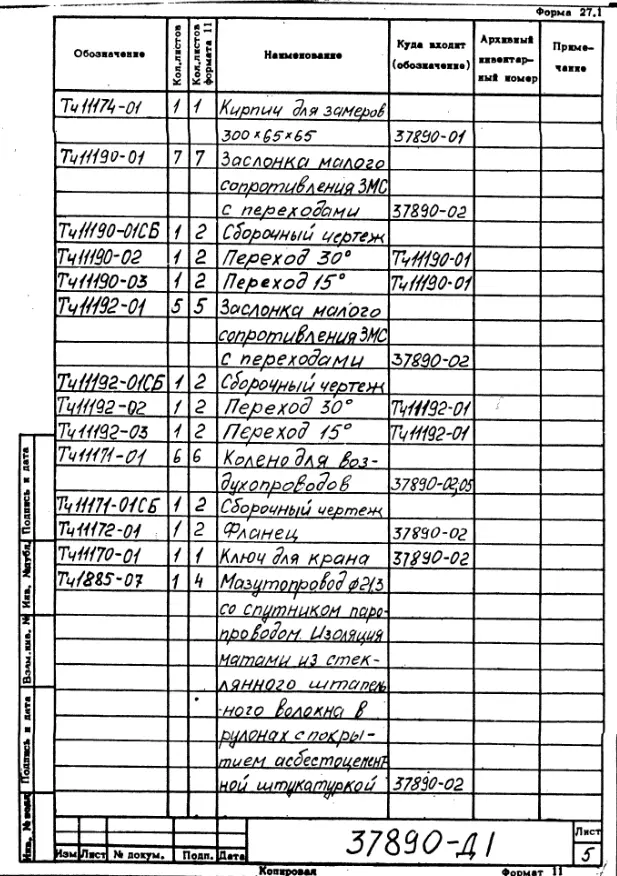 Форма 27.1
Обозначение Кол.листов Кол.листов формата 11 Наименование Куда входит (обозначение) Архивный инвентарный номер Примечание
Тч11174-01 1 1 Кирпич для замеров
300×65×65 37890-01
Тч11190-01 7 7 Заслонка малого
сопротивления ЗМС
с переходами 37890-02
Тч11190-01СБ 1 2 Сборочный чертеж
Тч11190-02 1 2 Переход 30° Тч11190-01
Тч11190-03 1 2 Переход 15° Тч11190-01
Тч11192-01 5 5 Заслонка малого
сопротивления ЗМС
с переходами 37890-02
Тч11192-01СБ 1 2 Сборочный чертеж
Тч11192-02 1 2 Переход 30° Тч11192-01
Тч11192-03 1 2 Переход 15° Тч11192-01
Тч11171-01 6 6 Колено для воз-
духопроводов 37890-02,05
Тч11171-01СБ 1 2 Сборочный чертеж
Тч11172-01 1 2 Фланец 37890-02
Тч11170-01 1 1 Ключ для крана 37890-02
Тч1885-07 1 4 Мазутопровод ф213
со спутником паро-
проводом. Изоляция
матами из стек-
лянного штапель-
ного волокна в
рулонах с покры-
тием асбестоцемент-
ной штукатуркой 37890-02
Подпись и дата
Инв. № дубл.
Взам.инв. №
Подпись и дата
Инв. № подл.
37890-Д1
Лист
5
Изм Лист № докум. Подп. Дата
Копировал Формат 11